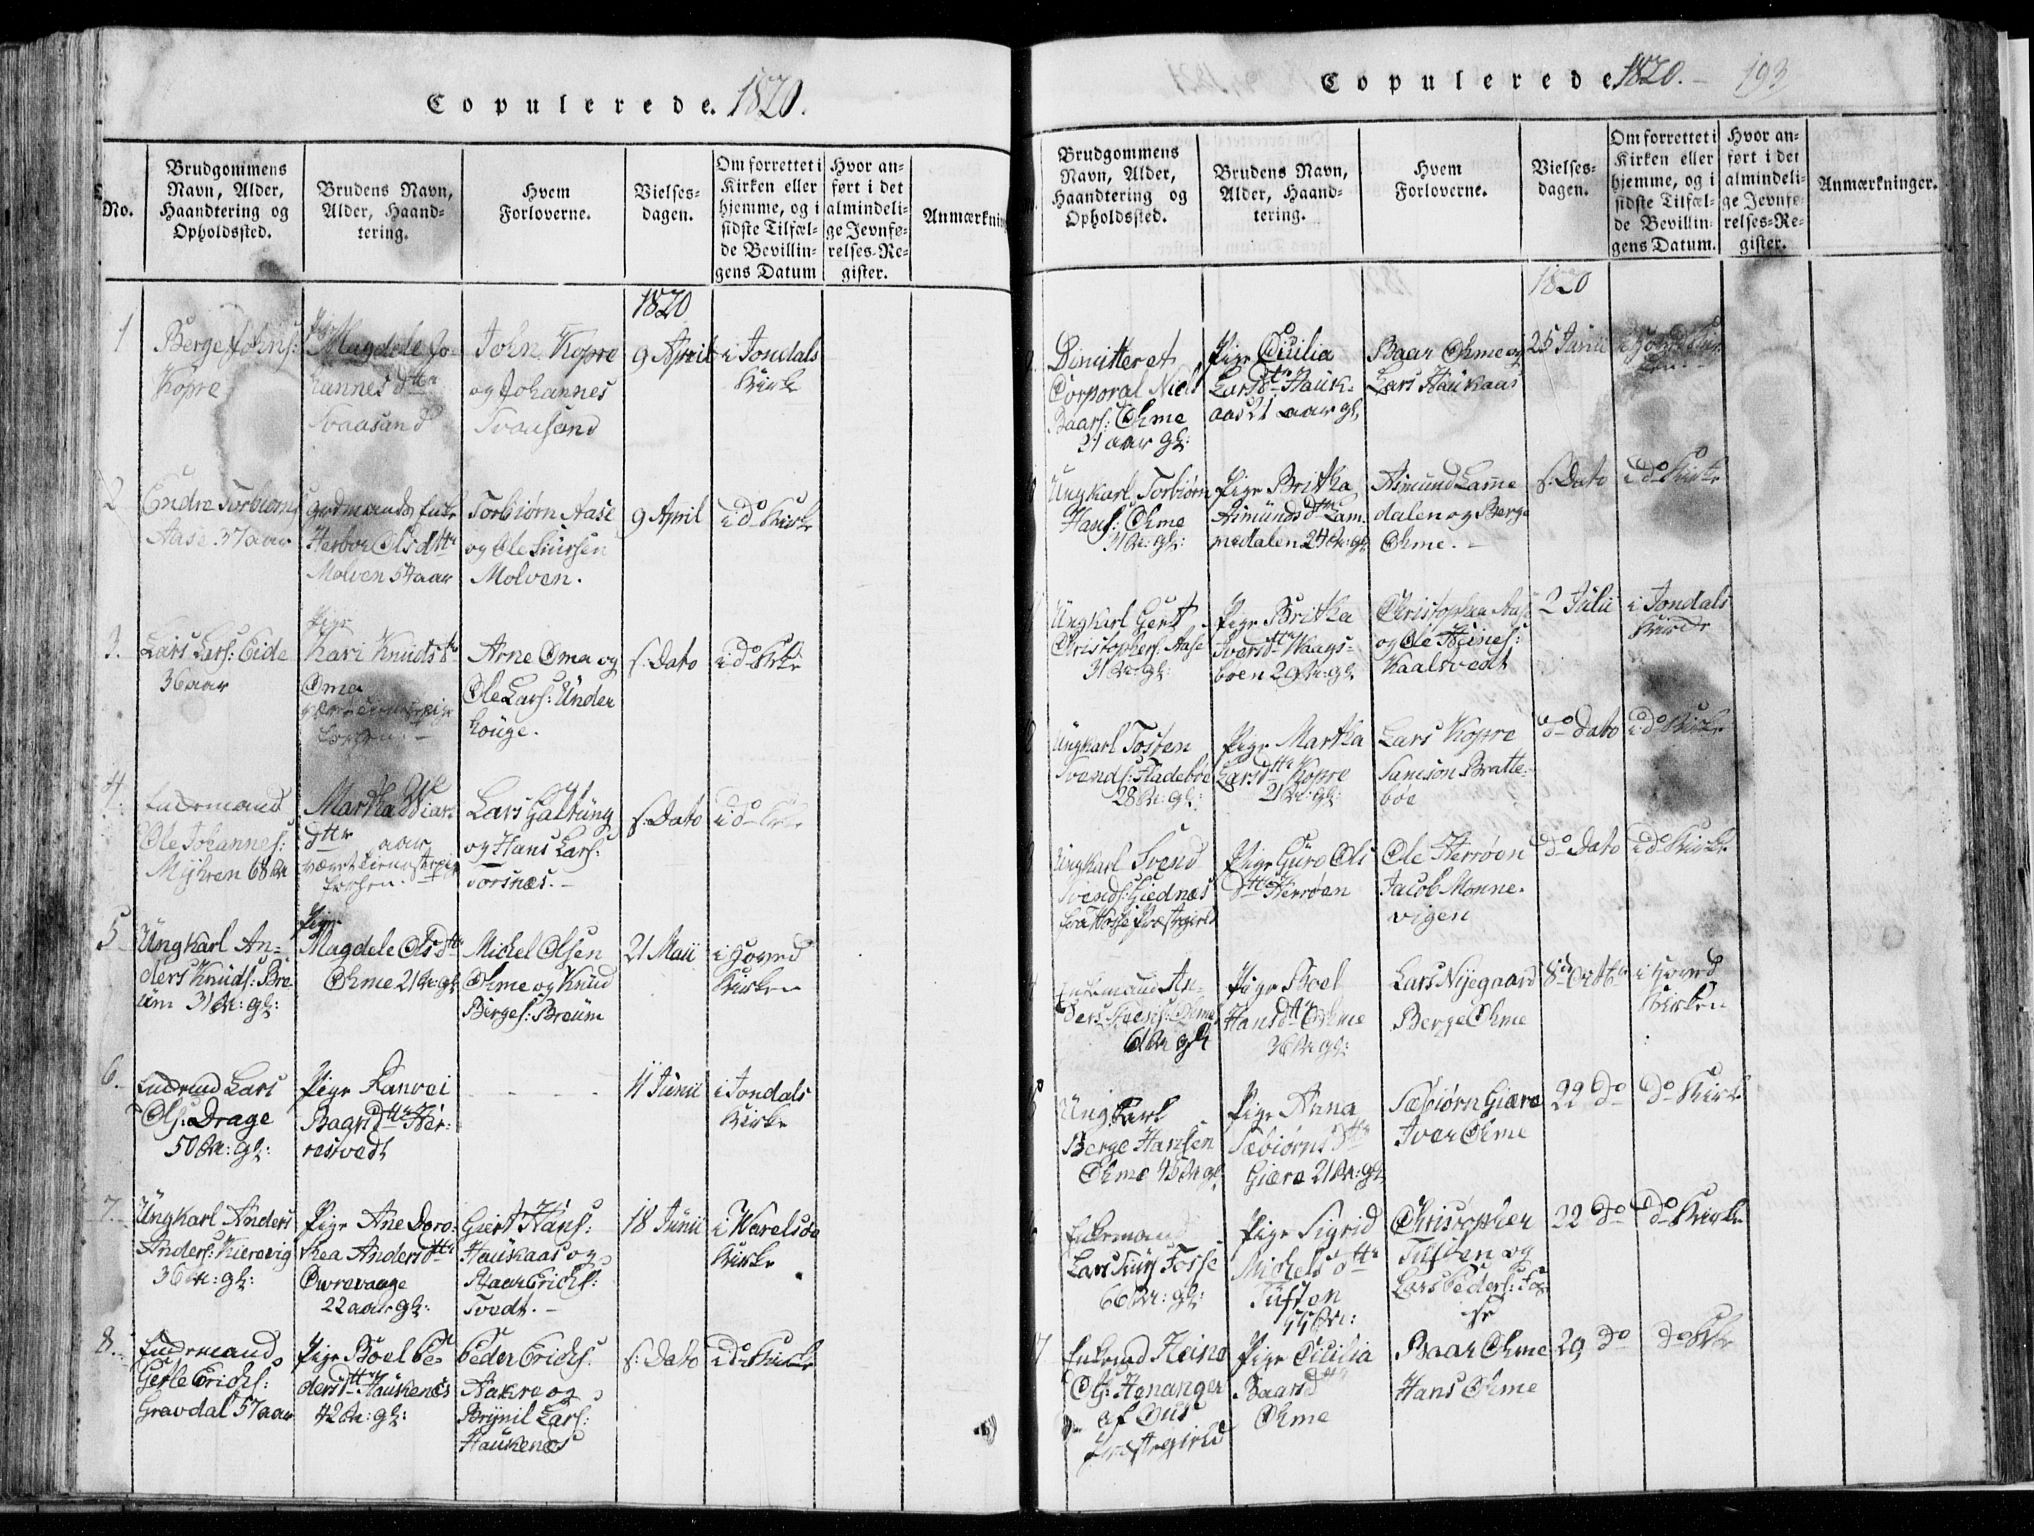 Copulerede. 1820.
No.
Brudgommens
Navn, Alder,
Haandtering og
Opholdssted.
Brudens Navn,
Alder, Haand-
tering.
Hvem
Forloverne.
Vielses-
dagen.
Om forrettet i
Kirken eller
hjemme, og i
sidste Tilfæl-
de Bevillin-
gens Datum
Hvor an-
ført i det
almindeli-
ge Jevnfø-
relses-Re-
gister.
Anmærkning
1820
1
Berge Johns:
Kopre
Pige
Magdele Jo-
hannes dttr
Svaasand
John Kopre
og Johannes
Svaasand
9 April
i Jondals
Kirke
2
Endre Torbiørns
Aase 37 aar
Herbor Ols dttr
Molven 54 aar
Torbiørn Aase
og Ole Siursen
Molven.
9 April
i do Kirke
3.
Lars Lars: Eide
36 aar
Pige
Kari Knuds dtr
Oma
Arne Oma og
Ole Lars: Under
houge.
s: Dato
i do Kirke
4.
Enkemand
Ole Johannes:
Myhren 68 Ar
Martha
dttr aar
Lars Galtung
og Hans Lars:
Torsnæs.-
s: Dato
i do Kirke
5
Ungkarl An-
ders Knuds: Bre
üm 31 Ar: gl:
Pige
Magdele Ols dttr
Ohme 21 Ar: gl
Michel Olsen
Ohme og Knud
Berges: Breüm
21 Maii
i Hoved
Kirken
6.
Enkemd Lars
Ols: Drage
50 Ar: gl:
Pige Ranvei
Baars dttr Her-
restvedt
11 Junii
i Jondals
Kirke
7.
Ungkarl Anders
Anders: Kierevig
36 Ar: gl:
Pige Ane Doro-
thea Anders dttr
Owrevaage
22 aar gl:
Giert Hans:
Haukaas og
Baar Erichs:
Tvedt.-
18 Junii
i Warelsøe
Kirke
8.
Enkemand
Gitle Erichs:
Gravdal 57 aar
Pige Boel Pe-
ders dttr Haukenæs
42 Ar: gl:
Peder Erichs:
Aakre og
Brynil Lars:
Haukenæs
s: Dato
i do Kirke
Copulerede 1820.- 193
Brudgommens
Navn, Alder,
Haandtering og
Opholdssted.
Brudens Navn,
Alder, Haand-
tering.
Hvem
Forloverne.
Vielses-
dagen.
Om forrettet i
Kirken eller
hjemme, og i
sidste Tilfæl-
de Bevillin-
gens Datum.
Hvor an-
ført i det
almindeli-
ge Jevnfø-
relses-Re-
gister.
Anmærkninger.
1820
Dimitteret
Corporal Niels
Baars: Ohme
31 aar gl:
Pige Cicilia
Lars dtr Hauk-
aas 21 aar gl
Baar Ohme og
Lars Haukaas
25 Junii
Ungkarl Torbiørn
Hans: Ohme
31 Ar: gl:
Pige Britha
Asmunds dttr Lam-
medalen 24 Ar: gl
Asmund Lamme
dalen og Berge
Ohme.-
s: Dato
i do Kirke
Ungkarl Gert
Christophers: Aase
31 Ar: gl:
Pige Britha
Ivers dttr Waags-
bøen 29 Ar: gl
Christopher Aase
og Ole Heines:
Kaalsvedt
2 Julii
i Jondals
Kirke
Ungkarl Tosten
Svends: Fladebøe
28 Ar: gl:
Pige Martha
Lars dttr Kopre
21 Ar: gl:
Lars Kopre
Samson Bratte-
bøe
do Dato
i do Kirke
Ungkarl Svend
Svends: Giednæs
Pige Guro Ols
dttr Herrøen
Ole Herrøen
Jacob Monne-
vigen
do Dato
i do Kirke
Enkemand An-
ders Ohme
61 Ar gl
Pige Boel
Hans dttr Ohme
36 Ar: gl:
Lars Nygaard
Berge Ohme
8de Octbr
i Hoved
Kirken
Ungkarl
Berge Hansen
Ohme 46 Ar gl
Pige Anna
Sæbiørns dttr
Giæra 21 Ar: gl:
Sæbiørn Giæra
Iver Ohme
22 do
do Kirke
Enkemand
Lars Siurs Fosse
66 Ar: gl:
Pige Sigrid
Michels dttr
Tuften
44 Ar:
Christopher
Tuften og
Lars Peders: Fos-
se
22 do
do Kirke
Enkemd Heine
Ols: Henanger
af Ous
Præstegield
Pige Cicilia
Baars dttr
Ohme
Baar Ohme
Hans Ohme
29 do
do Kirke